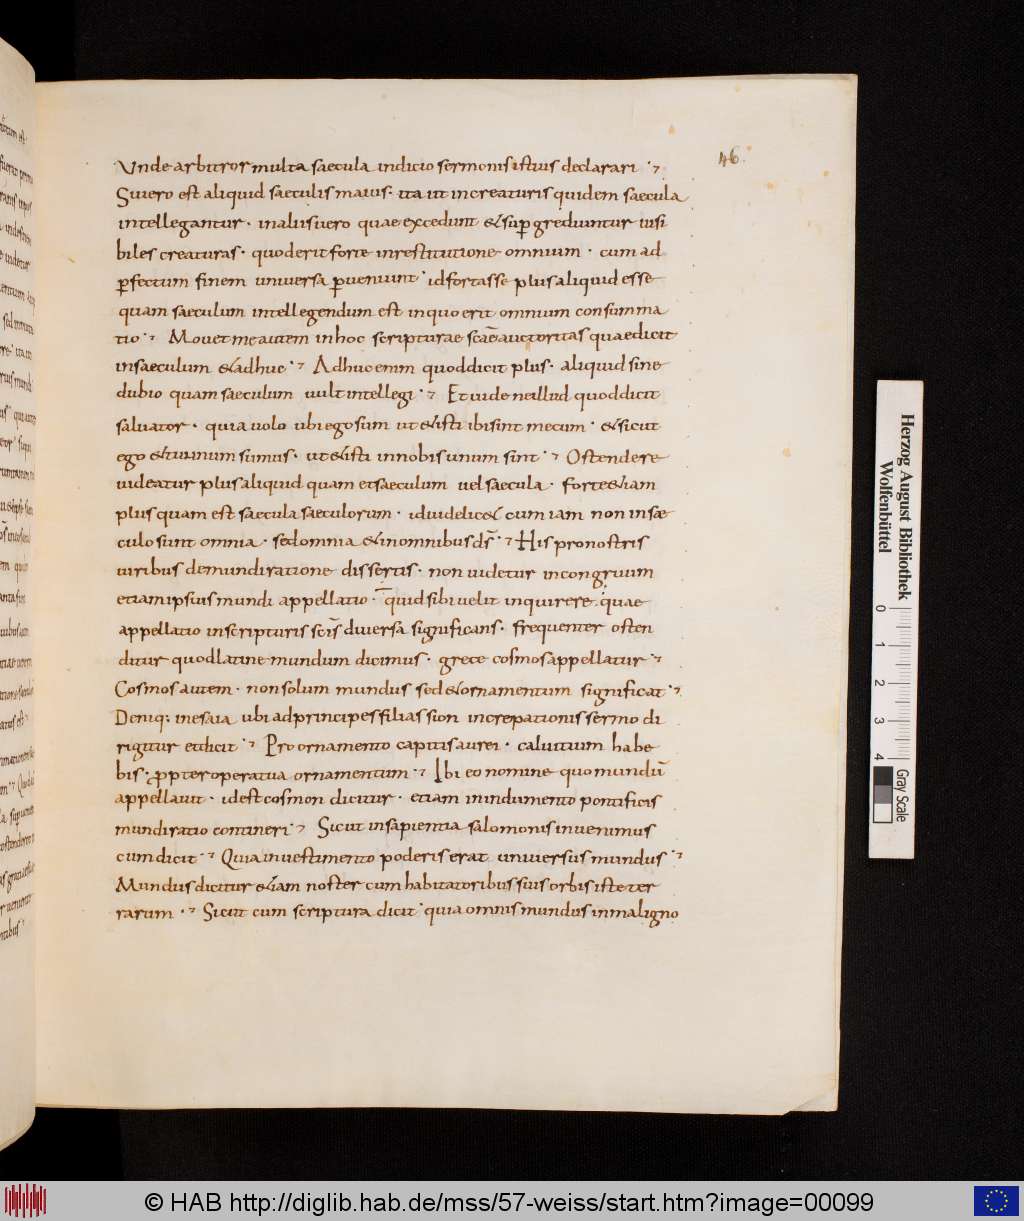 46.
Unde arbitror multa saecula indicio sermonis istius declarari
Si uero est aliquid saeculis maius · ita ut in creaturis quidem saecula
intellegantur · in aliis uero quae excedunt & sup grediuntur uisi
biles creaturas · quod erit forte in restitutione omnium · cum ad
pfectum finem uniuersa pueniunt · id fortasse plus aliquid esse
quam saeculum intellegendum est in quo erit omnium consumma
tio · Mouet me autem in hoc scripturae scae auctoritas quae dicit
in saeculum & adhuc · Adhuc enim quod dicit plus · aliquid sine
dubio quam saeculum uult intellegi · Et uide ne illud quod dicit
saluator · quia uolo ubi ego sum ut & isti ibi sint mecum · & sicut
ego & tu unum sumus · ut & isti in nobis unum sint · Ostendere
uideatur plus aliquid quam et saeculum uel saecula · forte &iam
plus quam est saecula saeculorum · id uidelic& cum iam non in sae
culo sunt omnia · sed omnia & in omnibus ds · His pro nostris
uiribus de mundi ratione dissertis · non uidetur incongruum
etiam ipsius mundi appellatio · quid sibi uelit inquirere · quae
appellatio in scripturis scis diuersa significans · frequenter osten
ditur quod latine mundum dicimus · grece cosmos appellatur
Cosmos autem · non solum mundus sed & ornamentum significat
Deniq· in esaia ubi ad principes filias sion increpationis sermo di
rigitur et dicit · Pro ornamento capitis aurei · caluitium habe
bis · propter opera tua ornamentum · Ibi eo nomine quo mundū
appellauit · id est cosmon dicitur · etiam in indumento pontificis
mundi ratio contineri · Sicut in sapientia salomonis inuenimus
cum dicit · Quia in uestimento poderis erat uniuersus mundus
Mundus dicitur &iam noster cum habitatoribus suis orbis iste ter
rarum · Sicut cum scriptura dicit · quia omnis mundus in maligno
Herzog August Bibliothek
Wolfenbüttel
0 1 2 3 4
Gray Scale
© HAB http://diglib.hab.de/mss/57-weiss/start.htm?image=00099